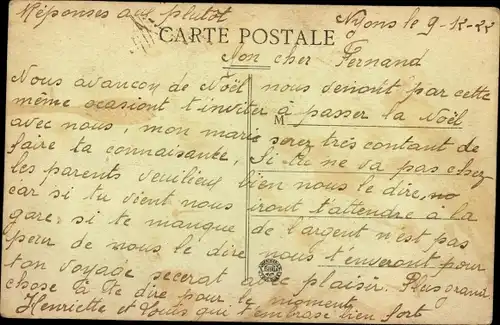 Réponses aux plutot
Nyons le 9-12-22
CARTE POSTALE
Mon cher Fernand
Nous avançon de Noël nous venont par cette
même ocasiont t'inviter à passer la Noël
M
avec nous, mon marie serez très contant de
faire ta connaisante, Si tu ne va pas chez
les parents veuilieux bien nous le dire, no
car si tu vient nous iront t'attendre à la
gare; si te manque de l'argent n'est pas
peur de nous le dire nous t'enveront pour
ton voyage secerat avec plaisir. Plus grand
chose à te dire pour le moment
Henriette et Louis qui t'embrase bien fort